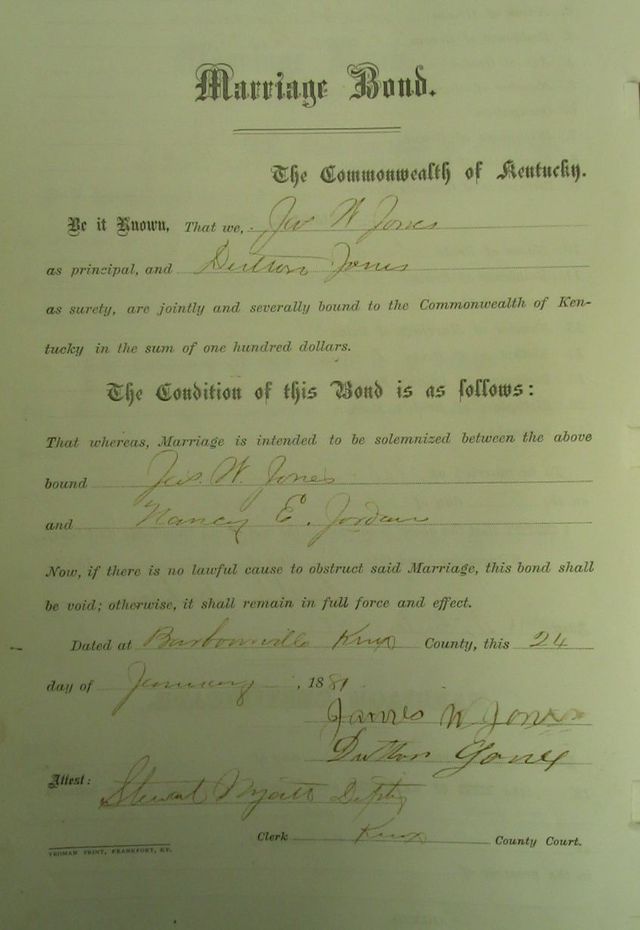 Marriage Bond.
The Commonwealth of Kentucky.
Be it Known, That we, Jas W Jones
as principal, and Dutton Jones
as surety, are jointly and severally bound to the Commonwealth of Ken-
tucky in the sum of one hundred dollars.
The Condition of this Bond is as follows:
That whereas, Marriage is intended to be solemnized between the above
bound Jas. W. Jones
and Nancy E. Jordan
Now, if there is no lawful cause to obstruct said Marriage, this bond shall
be void; otherwise, it shall remain in full force and effect.
Dated at Barbourville Knox County, this 24
day of January, 1881
James W Jones
Dutton Jones
Attest: Stewart Myatt Depty
Clerk Knox County Court.
YEOMAN PRINT, FRANKFORT, KY.